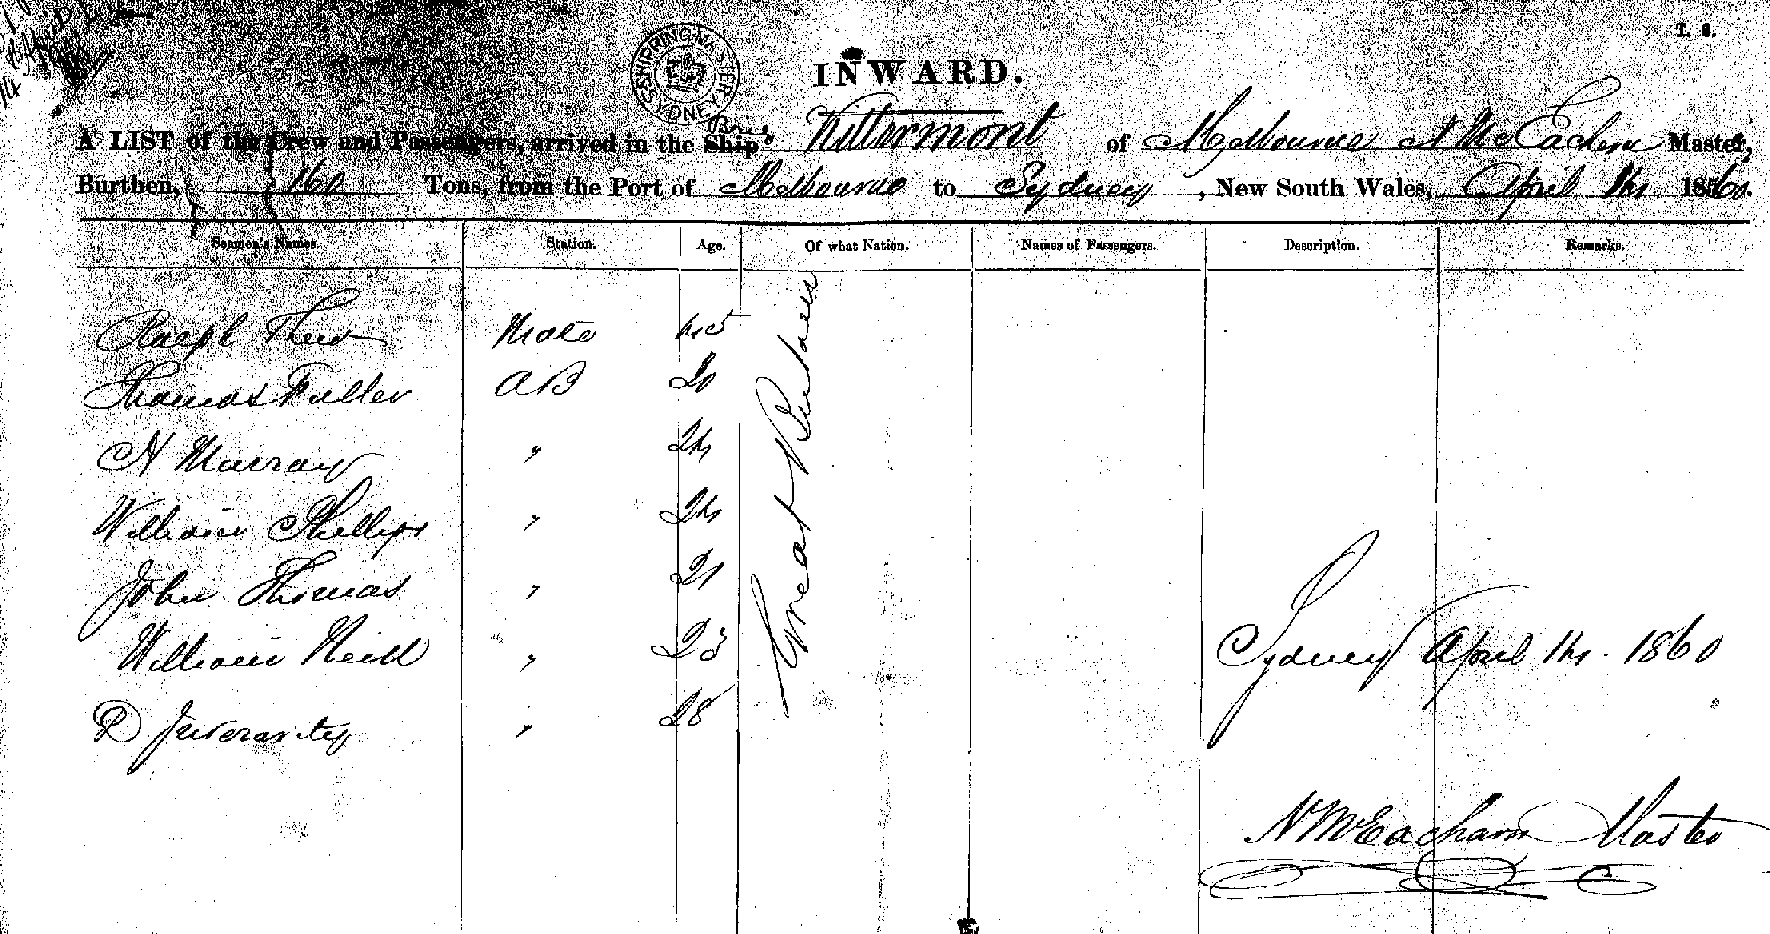 T. S.
SHIPPING MASTER SYDNEY
INWARD.
A LIST of the Crew and Passengers, arrived in the Ship Brig Kittermont of Melbourne N McEachern Master,
Burthen, 160 Tons, from the Port of Melbourne to Sydney, New South Wales, April 14 1860.
Seamen's Names. Station. Age. Of what Nation. Names of Passengers. Description. Remarks.
Ralph Mate 45 Great Britain
Thomas Fuller AB 20
N Murray " 24
William Phillips " 24
John Thomas " 21
William Neill " 23
Sydney April 14. 1860
D Inverarity " 28
N McEacharn Master